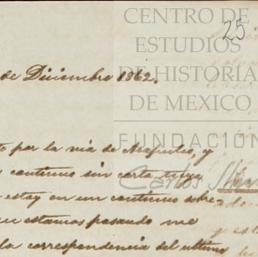 CENTRO DE
ESTUDIOS
DE HISTORIA
DE MEXICO
FUNDACIÓN
Carlos Slim
25
de Diciembre 1862.
to por la via de Acapulco, y
continuo sin carta tuya
estoy en un continuo sobre-
estamos pasando me
la correspondencia del ultimo